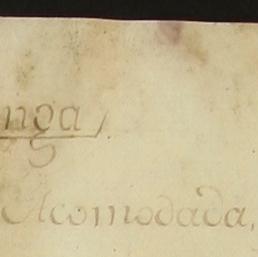 nga
Acomodada,